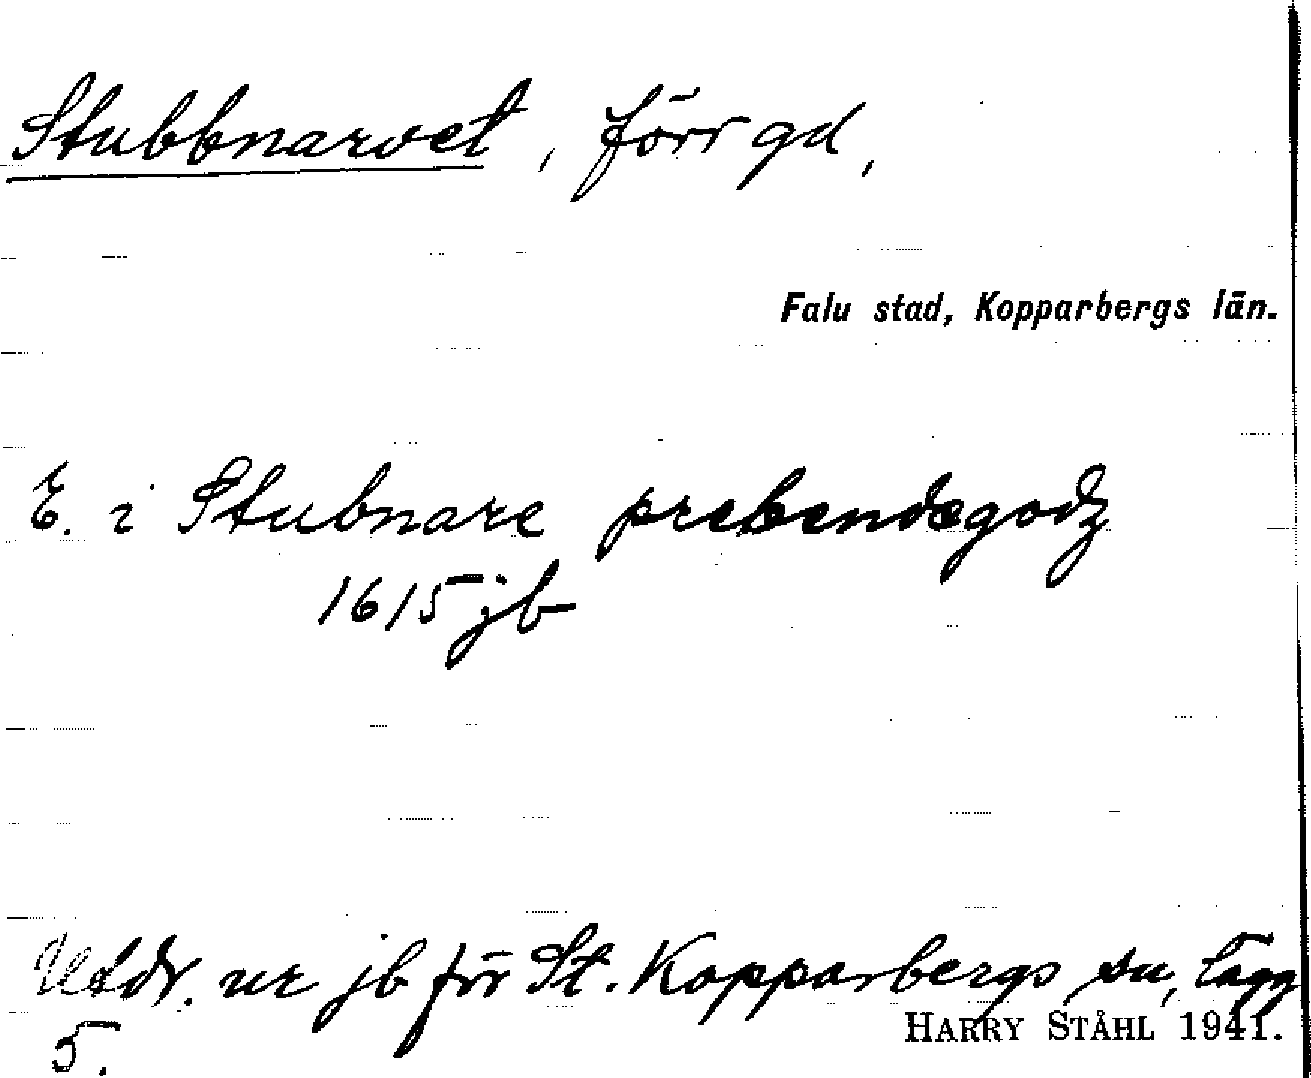 Stubbnarvet, förr gd,
Falu stad, Kopparbergs län.
E. i Stubnare prebendegodz
1615 jb
Utdr. ur jb för St. Kopparbergs sn, lägg
5.
HARRY STÅHL 1941.